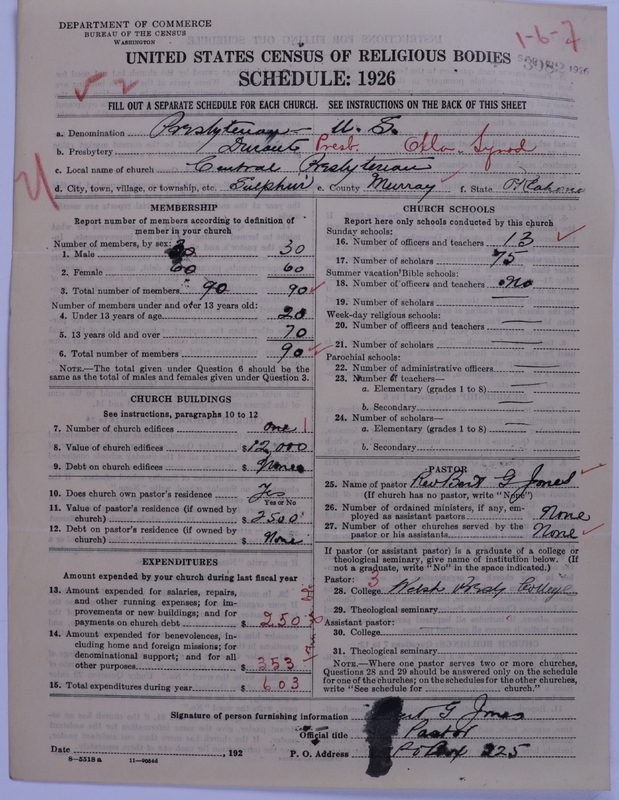 DEPARTMENT OF COMMERCE
BUREAU OF THE CENSUS
WASHINGTON
1-6-7
UNITED STATES CENSUS OF RELIGIOUS BODIES
SCHEDULE: 1926
1926
FILL OUT A SEPARATE SCHEDULE FOR EACH CHURCH. SEE INSTRUCTIONS ON THE BACK OF THIS SHEET
a. Denomination Presbyterian - U. S.
b. Presbytery Durant Presb. Okla. Synod
c. Local name of church Central Presbyterian
d. City, town, village, or township, etc. Sulphur e. County Murray f. State Oklahoma
MEMBERSHIP
Report number of members according to definition of
member in your church
Number of members, by sex:
1. Male 30 30
2. Female 60 60
3. Total number of members 90 90
Number of members under and over 13 years old:
4. Under 13 years of age 20
5. 13 years old and over 70
6. Total number of members 90
NOTE.—The total given under Question 6 should be the
same as the total of males and females given under Question 3.
CHURCH BUILDINGS
See instructions, paragraphs 10 to 12
7. Number of church edifices one 1
8. Value of church edifices $12,000
9. Debt on church edifices $ None
10. Does church own pastor's residence Yes
Yes or No
11. Value of pastor's residence (if owned by
church) $ 2500
12. Debt on pastor's residence (if owned by
church) $ None
EXPENDITURES
Amount expended by your church during last fiscal year
13. Amount expended for salaries, repairs,
and other running expenses; for im-
provements or new buildings; and for
payments on church debt $ 250
14. Amount expended for benevolences, in-
cluding home and foreign missions; for
denominational support; and for all
other purposes $ 353
15. Total expenditures during year $ 603
CHURCH SCHOOLS
Report here only schools conducted by this church
Sunday schools:
16. Number of officers and teachers 13
17. Number of scholars 75
Summer vacation Bible schools:
18. Number of officers and teachers No
19. Number of scholars
Week-day religious schools:
20. Number of officers and teachers
21. Number of scholars
Parochial schools:
22. Number of administrative officers
23. Number of teachers—
a. Elementary (grades 1 to 8)
b. Secondary
24. Number of scholars—
a. Elementary (grades 1 to 8)
b. Secondary
PASTOR
25. Name of pastor Rev Bert G Jones
(If church has no pastor, write "None")
26. Number of ordained ministers, if any, em-
ployed as assistant pastors None
27. Number of other churches served by the
pastor or his assistants None
If pastor (or assistant pastor) is a graduate of a college or
theological seminary, give name of institution below. (If
not a graduate, write "No" in the space indicated.)
Pastor: 3
28. College Welsh Presby College
29. Theological seminary
Assistant pastor:
30. College
31. Theological seminary
NOTE.—Where one pastor serves two or more churches,
Questions 28 and 29 should be answered only on the schedule
for one of the churches; on the schedules for the other churches,
write "See schedule for church."
Signature of person furnishing information Bert G Jones
Official title Pastor
Date , 192 P. O. Address PO Box 225
8-5518a